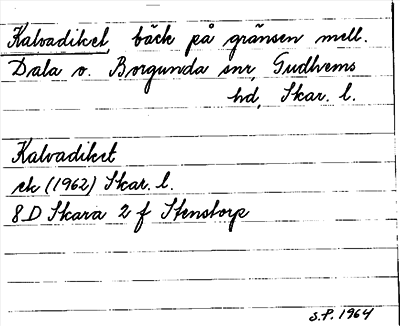 Kalvadiket, bäck på gränsen mell.
Dala o. Borgunda snr, Gudhems
hd, Skar. l.
Kalvadiket
ek (1962) Skar. l.
8D Skara 2 f Stenstorp
S.P. 1964